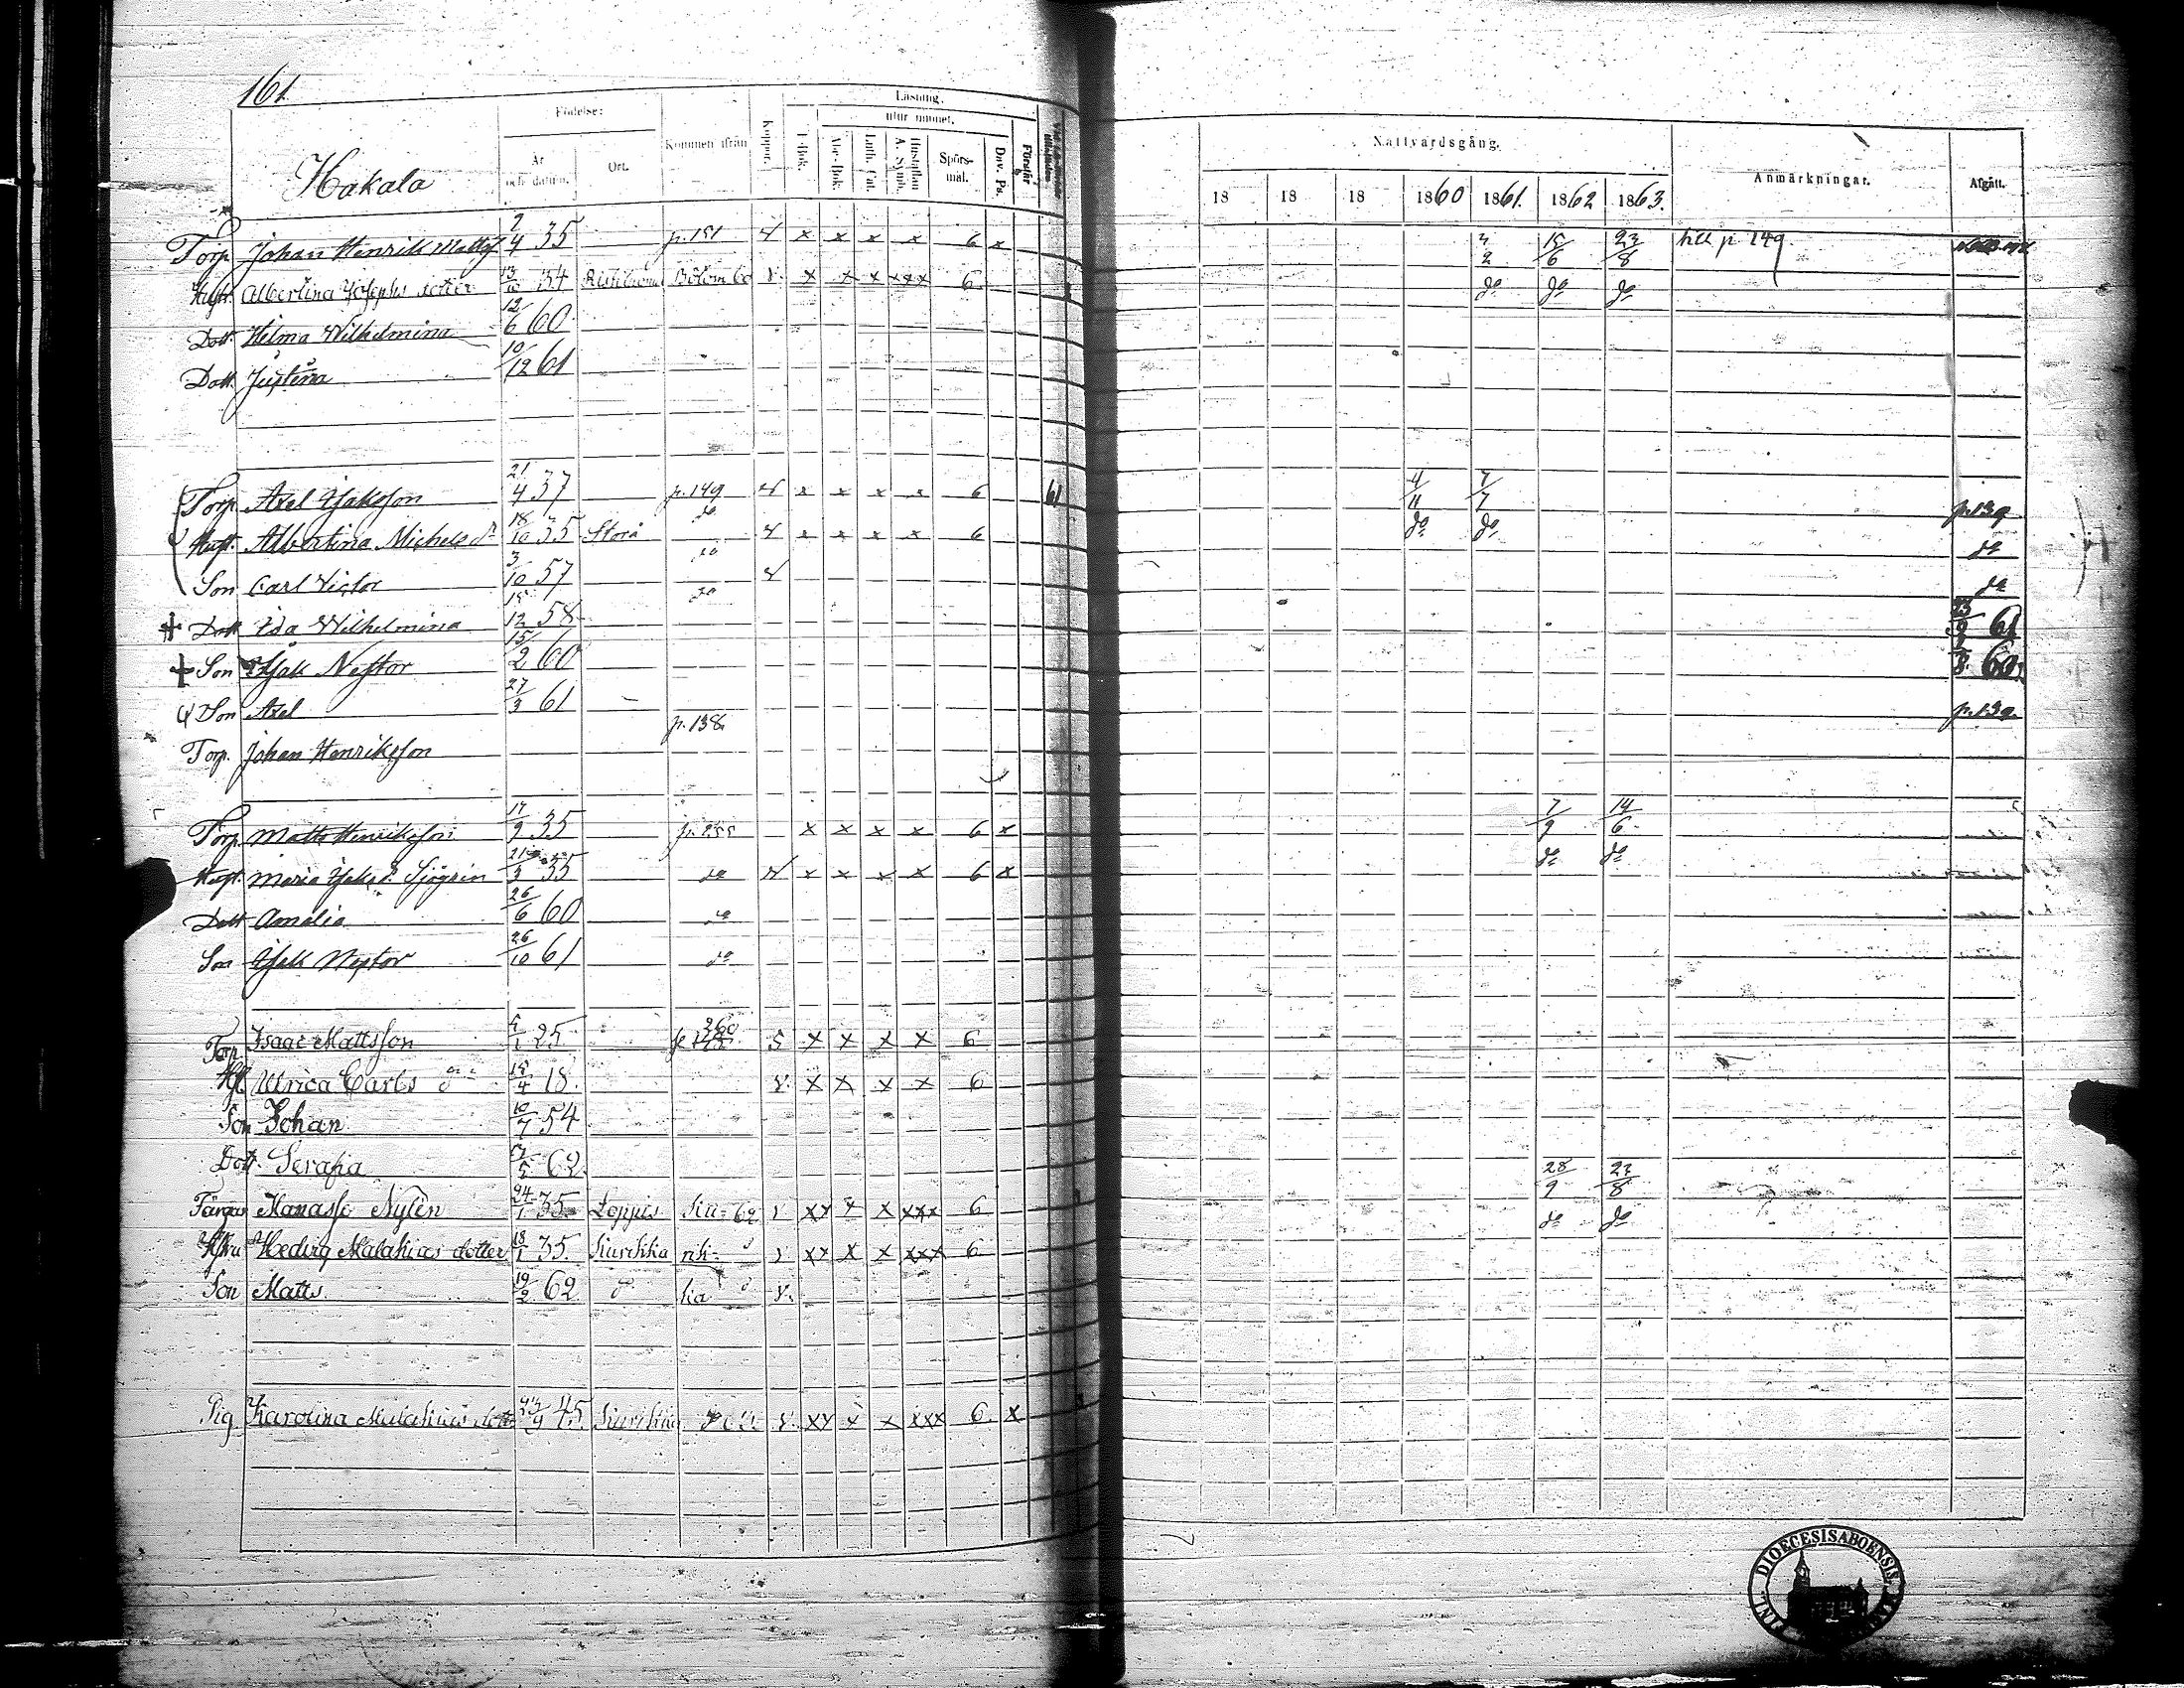 161
Hakala
Födelse:
År och datum.
Ort.
Kommen ifrån
Koppor.
Läsning.
I Bok.
utur minnet.
Abc-Bok.
Luth. Cat.
Hustaflan A. Symb.
Spörs-mål.
Dav. Ps.
Förstår
Nattvardsgång.
18 18 18 1860 1861. 1862 1863.
Anmärkningar.
Afgått.
Torp. Johan Henrik Mattss. 2/4 35 p. 151 x x x x 6 x 15/6 23/8 till p 149
Hust. Albertina Josephs dotter 13/10 34 x x x xxx 6 do do do
Dott. Hilma Wilhelmina 12/6 60
Dott. Justina 10/12 61
Torp. Axel Isaksson 21/4 37 p. 149 x x x x 6 61 4/11 7/7 p. 139
Hust. Albertina Michelsdr 18/10 35 Storå do x x x x 6 do do do
Son Carl Victor 3/10 57 do do
Dott Ida Wilhelmina 15/12 58 do 61
Son Isak Nestor 15/2 60 60
Son Axel 27/3 61 p. 139
Torp. Johan Henriksson p. 138
Torp. Matts Henriksson 17/9 35 x x x x 6 x 7/9 14/6
Hust. Maria Isaksdr. Sjögrén 21/3 35 do x x x x 6 x do do
Dott Amalia 26/6 60 do
Son Isak Nestor 26/10 61 do
Torp Isaac Mattsson 25 260 S x x x x 6
Ulrica Carls dr 18/4 18. v. x x x x 6
Son Johan 10/7 54
Dott. Serafia 62
Färgar Manasse Nylén 24/1 35 Loppis Kiu- 62 v xx x x xxx 6 28/9 23/8
Hedvig Malakias dotter 18/1 35. Kiurikka rik- v xx x x xxx 6 do do
Son Matts 19/2 62 d ka v.
Pig. Karolina Malakias dott 23/9 45. Kiurikka v. xx x x xxx 6. x
DIOECESIS ABOENSIS